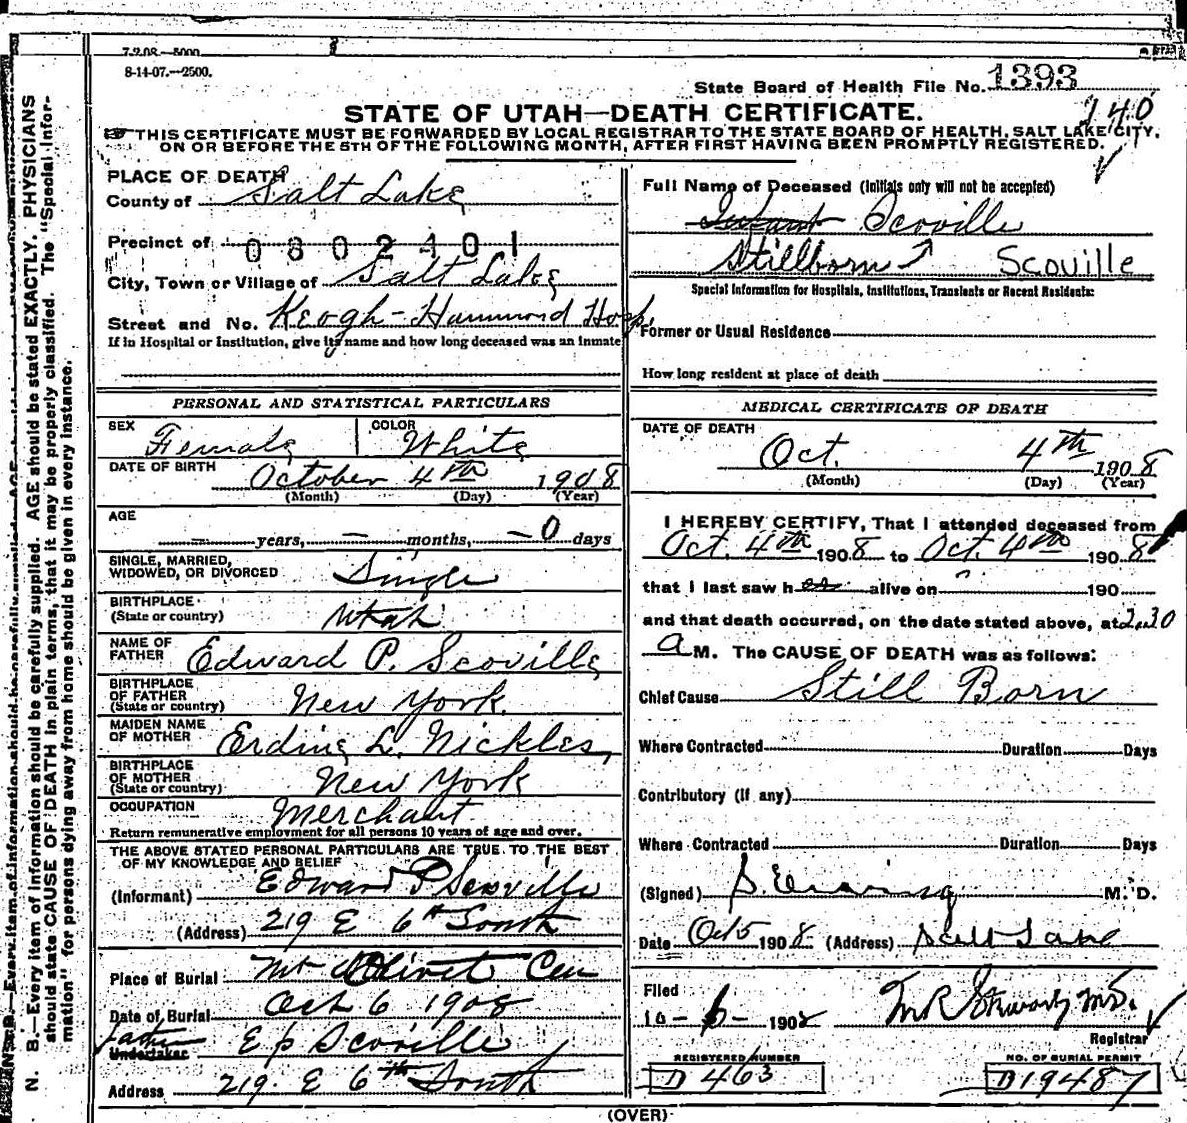 7-2-08.—5000.
8-14-07.—2500.
State Board of Health File No. 1393
STATE OF UTAH—DEATH CERTIFICATE.
240
THIS CERTIFICATE MUST BE FORWARDED BY LOCAL REGISTRAR TO THE STATE BOARD OF HEALTH, SALT LAKE CITY,
ON OR BEFORE THE 5TH OF THE FOLLOWING MONTH, AFTER FIRST HAVING BEEN PROMPTLY REGISTERED.
N. B.—Every item of information should be carefully supplied. AGE should be stated EXACTLY. PHYSICIANS
should state CAUSE OF DEATH in plain terms, that it may be properly classified. The "Special Infor-
mation" for persons dying away from home should be given in every instance.
PLACE OF DEATH
County of Salt Lake
Precinct of 0802401
City, Town or Village of Salt Lake
Street and No. Keogh-Hammond Hosp.
If in Hospital or Institution, give its name and how long deceased was an inmate
Full Name of Deceased (Initials only will not be accepted)
Infant Scoville
Stillborn Scoville
Special Information for Hospitals, Institutions, Transients or Recent Residents:
Former or Usual Residence
How long resident at place of death
PERSONAL AND STATISTICAL PARTICULARS
SEX Female COLOR White
DATE OF BIRTH October 4th 1908
(Month) (Day) (Year)
AGE
— years, — months, — 0 days
SINGLE, MARRIED,
WIDOWED, OR DIVORCED Single
BIRTHPLACE
(State or country) Utah
NAME OF
FATHER Edward P. Scoville
BIRTHPLACE
OF FATHER
(State or country) New York.
MAIDEN NAME
OF MOTHER Erdine L. Nickles,
BIRTHPLACE
OF MOTHER
(State or country) New York
OCCUPATION Merchant
Return remunerative employment for all persons 10 years of age and over.
THE ABOVE STATED PERSONAL PARTICULARS ARE TRUE TO THE BEST
OF MY KNOWLEDGE AND BELIEF
(Informant) Edward P Scoville
(Address) 219 E 6th South
Place of Burial Mt Olivet Cem
Date of Burial Oct 6 1908
Father
Undertaker E P Scoville
Address 219. E 6th South
MEDICAL CERTIFICATE OF DEATH
DATE OF DEATH
Oct. 4th 1908
(Month) (Day) (Year)
I HEREBY CERTIFY, That I attended deceased from
Oct. 4th 1908 to Oct. 4th 1908
that I last saw her alive on 190
and that death occurred, on the date stated above, at 2.30
a M. The CAUSE OF DEATH was as follows:
Chief Cause Still Born
Where Contracted Duration Days
Contributory (if any)
Where Contracted Duration Days
(Signed) M. D.
Date Oct 5 1908 (Address) Salt Lake
Filed
10-6-1908
Registrar
REGISTERED NUMBER
D 463
NO. OF BURIAL PERMIT
D19487
(OVER)